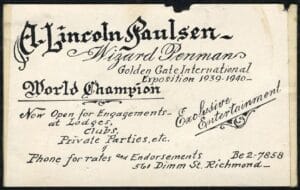 A. Lincoln Faulsen
Wizard Penman
Golden Gate International
Exposition 1939-1940
World Champion
Now Open for Engagements
at Lodges,
Clubs,
Private Parties, etc.
Exclusive
Entertainment
Phone for rates and Endorsements Be 2-7858
561 Dimm St. Richmond